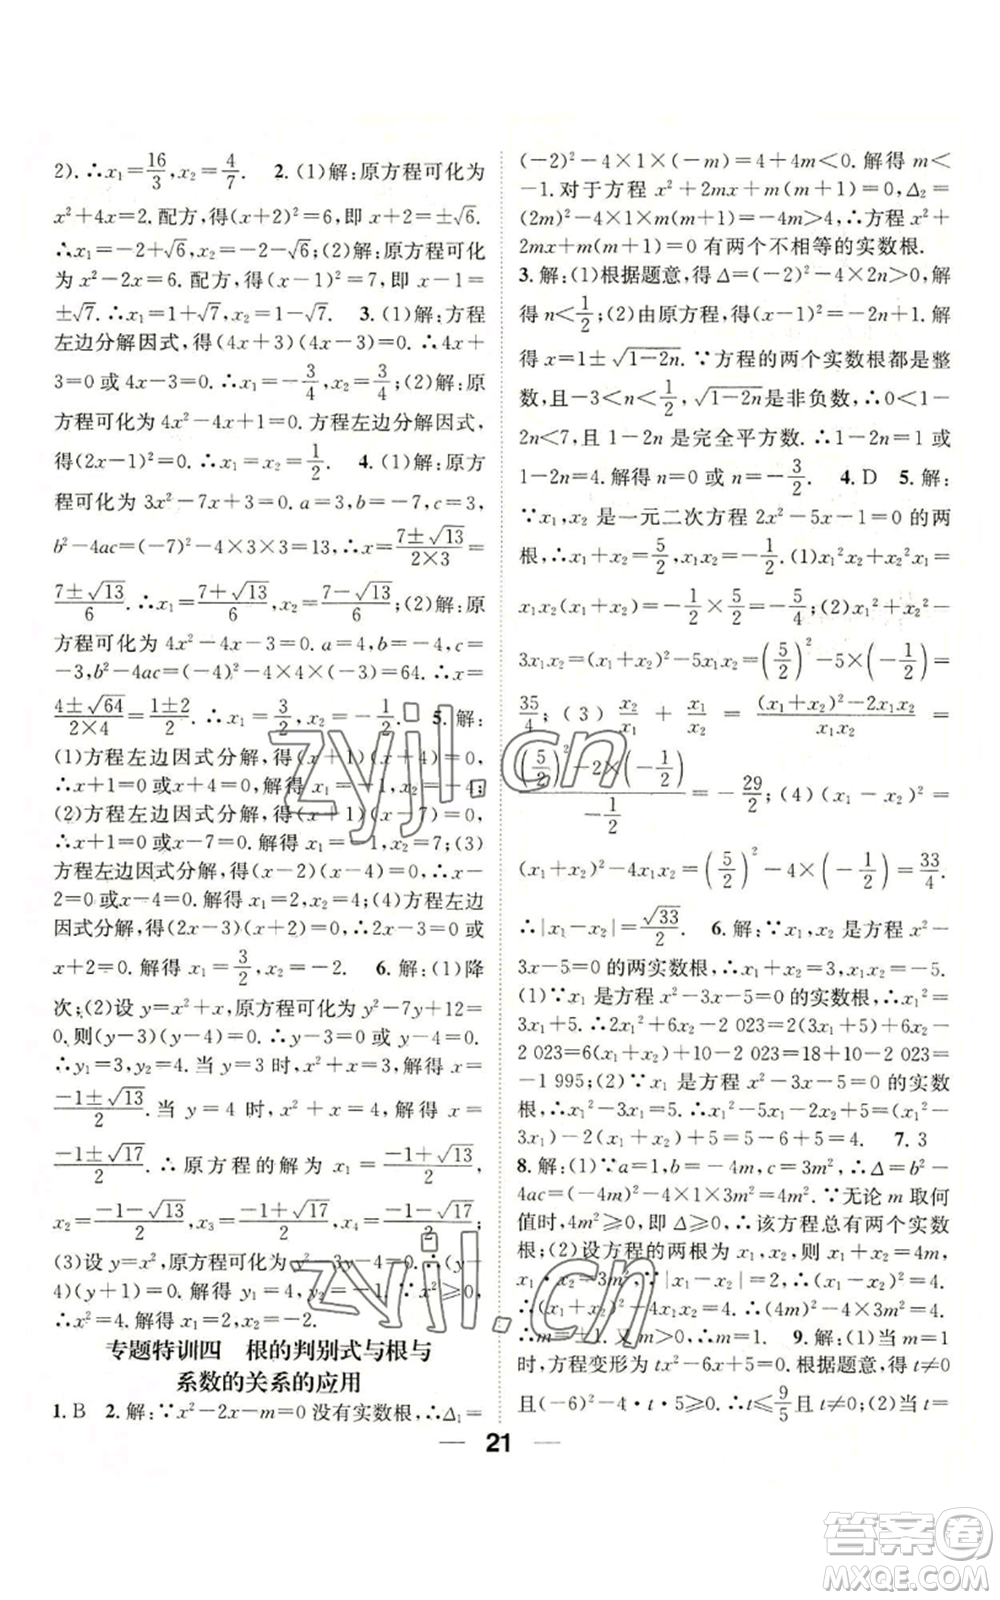 2). ∴x₁=16/3, x₂=4/7. 2. (1)解:原方程可化为
x²+4x=2. 配方, 得(x+2)²=6, 即 x+2=±√6.
∴x₁=-2+√6, x₂=-2-√6; (2)解:原方程可化
为 x²-2x=6. 配方, 得(x-1)²=7, 即 x-1=
±√7. ∴x₁=1+√7, x₂=1-√7. 3. (1)解:方程
左边分解因式, 得(4x+3)(4x-3)=0. ∴4x+
3=0 或 4x-3=0. ∴x₁=-3/4, x₂=3/4; (2)解:原
方程可化为 4x²-4x+1=0. 方程左边分解因式,
得(2x-1)²=0. ∴x₁=x₂=1/2. 4. (1)解:原方
程可化为 3x²-7x+3=0. a=3, b=-7, c=3,
b²-4ac=(-7)²-4×3×3=13, ∴x=(7±√13)/(2×3)=
(7±√13)/6. ∴x₁=(7+√13)/6, x₂=(7-√13)/6; (2)解:原
方程可化为 4x²-4x-3=0. a=4, b=-4, c=
-3, b²-4ac=(-4)²-4×4×(-3)=64. ∴x=
(4±√64)/(2×4)=(1±2)/2. ∴x₁=3/2, x₂=-1/2. 5. 解:
(1)方程左边因式分解, 得(x+1)(x+4)=0,
∴x+1=0 或 x+4=0. 解得 x₁=-1, x₂=-4;
(2)方程左边因式分解, 得(x+1)(x-7)=0,
∴x+1=0 或 x-7=0. 解得 x₁=-1, x₂=7; (3)
方程左边因式分解, 得(x-2)(x-4)=0. ∴x-
2=0 或 x-4=0. 解得 x₁=2, x₂=4; (4)方程左边
因式分解, 得(2x-3)(x+2)=0. ∴2x-3=0 或
x+2=0. 解得 x₁=3/2, x₂=-2. 6. 解:(1)降
次; (2)设 y=x²+x, 原方程可化为 y²-7y+12=
0, 则(y-3)(y-4)=0. ∴y-3=0 或 y-4=0.
∴y₁=3, y₂=4. 当 y=3 时, x²+x=3, 解得 x=
(-1±√13)/2. 当 y=4 时, x²+x=4, 解得 x=
(-1±√17)/2. ∴原方程的解为 x₁=(-1+√13)/2,
x₂=(-1-√13)/2, x₃=(-1+√17)/2, x₄=(-1-√17)/2;
(3)设 y=x², 原方程可化为 y²-3y-4=0. ∴(y-
4)(y+1)=0. 解得 y₁=4, y₂=-1. ∵y=x²≥0,
∴x²=4. 解得 x₁=2, x₂=-2.
专题特训四 根的判别式与根与
系数的关系的应用
1. B 2. 解:∵x²-2x-m=0 没有实数根, ∴Δ₁=
(-2)²-4×1×(-m)=4+4m<0. 解得 m<
-1. 对于方程 x²+2mx+m(m+1)=0, Δ₂=
(2m)²-4×1×m(m+1)=-4m>4, ∴方程 x²+
2mx+m(m+1)=0 有两个不相等的实数根.
3. 解:(1)根据题意, 得 Δ=(-2)²-4×2n>0, 解
得 n<1/2; (2)由原方程, 得(x-1)²=-2n+1. 解
得 x=1±√1-2n. ∵方程的两个实数根都是整
数, 且-3<n<1/2, √1-2n是非负数, ∴0<1-
2n<7, 且 1-2n 是完全平方数. ∴1-2n=1 或
1-2n=4. 解得 n=0 或 n=-3/2. 4. D 5. 解:
∵x₁, x₂ 是一元二次方程 2x²-5x-1=0 的两
根, ∴x₁+x₂=5/2, x₁x₂=-1/2. (1)x₁²x₂+x₂²x₁=
x₁x₂(x₁+x₂)=-1/2×5/2=-5/4; (2)x₁²+x₂²-
3x₁x₂=(x₁+x₂)²-5x₁x₂=(5/2)²-5×(-1/2)=
35/4; (3) x₂/x₁ + x₁/x₂ = ((x₁+x₂)²-2x₁x₂)/(x₁x₂) =
((5/2)²-2×(-1/2))/(-1/2)=-29/2; (4)(x₁-x₂)²=
(x₁+x₂)²-4x₁x₂=(5/2)²-4×(-1/2)=33/4,
∴|x₁-x₂|=√33/2. 6. 解:∵x₁, x₂ 是方程 x²-
3x-5=0 的两实数根, ∴x₁+x₂=3, x₁x₂=-5.
(1)∵x₁ 是方程 x²-3x-5=0 的实数根, ∴x₁²=
3x₁+5. ∴2x₁²+6x₂-2 023=2(3x₁+5)+6x₂-
2 023=6(x₁+x₂)+10-2 023=18+10-2 023=
-1 995; (2)∵x₁ 是方程 x²-3x-5=0 的实数
根, ∴x₁²-3x₁=5. ∴x₁²-5x₁-2x₂=x₁²-
3x₁-2(x₁+x₂)+5=5-6+5=4. 7. 3
8. 解:(1)∵a=1, b=-4m, c=3m², ∴Δ=b²-
4ac=(-4m)²-4×1×3m²=4m². ∵无论 m 取何
值时, 4m²≥0, 即 Δ≥0, ∴该方程总有两个实数
根; (2)设方程的两根为 x₁, x₂, 则 x₁+x₂=4m,
x₁·x₂=3m². ∵|x₁-x₂|=2, ∴(x₁-x₂)²=4.
∴(x₁+x₂)²-4x₁x₂=4. ∴(4m)²-4×3m²=4.
∴m²=1. ∴m=±1. 9. 解:(1)∵m=t, n=1 时,
方程变形为 tx²-6x+5=0. 根据题意, 得 t≠0
且(-6)²-4·t·5≥0, ∴t≤9/5且 t≠0; (2)当 t=
21
zyjl.cn
zyjl.cn
答案卷
MXQE.COM